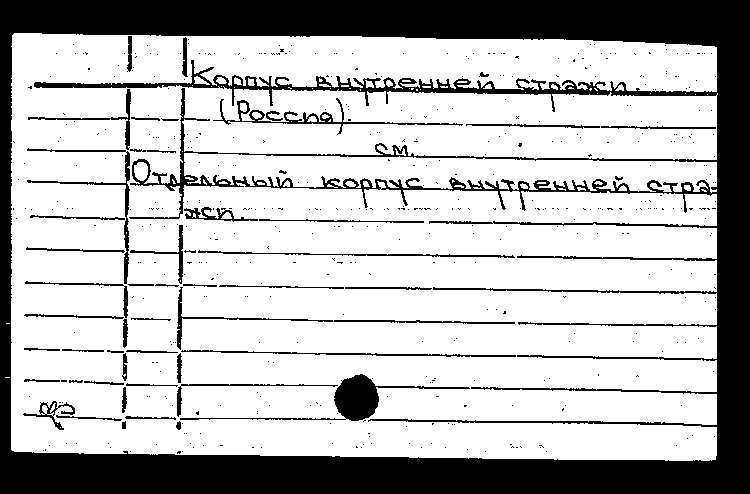 Корпус внутренней стражи.
(Россия).
см.
Отдельный корпус внутренней стра-
жи.